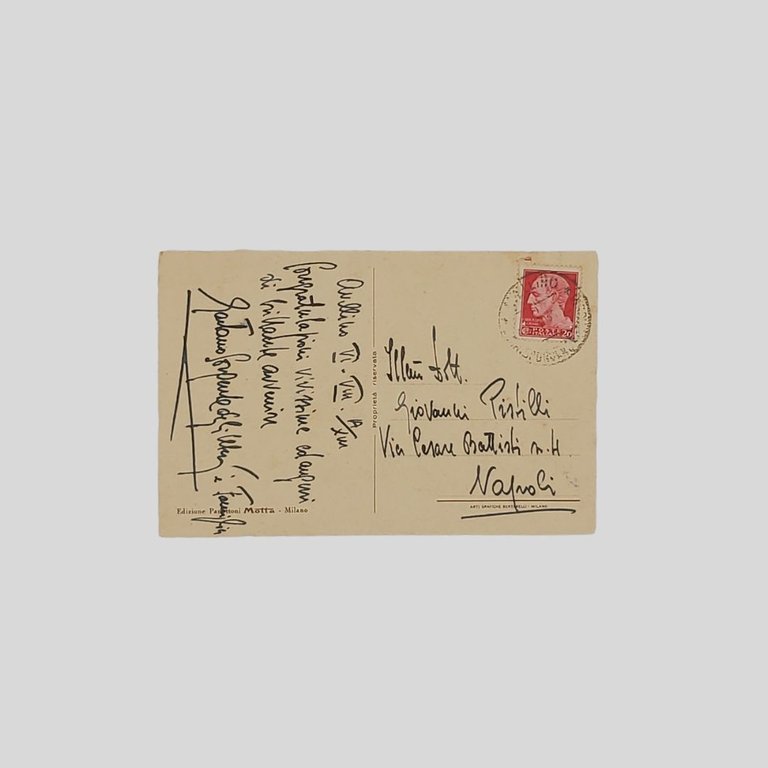 Avellino VI-VIII-
Congratulazioni vivissime ed auguri
di brillante avvenire
Gaetano
e Famiglia
Edizione Panettoni Motta - Milano
Proprietà riservata
Ill.mo Dott.
Giovanni Pistilli
Via Cesare Battisti n. 4.
Napoli
ARTI GRAFICHE BERTARELLI - MILANO